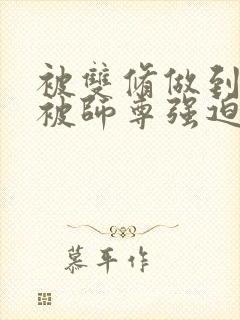 被雙脩做到
被師尊强迫
慕平作